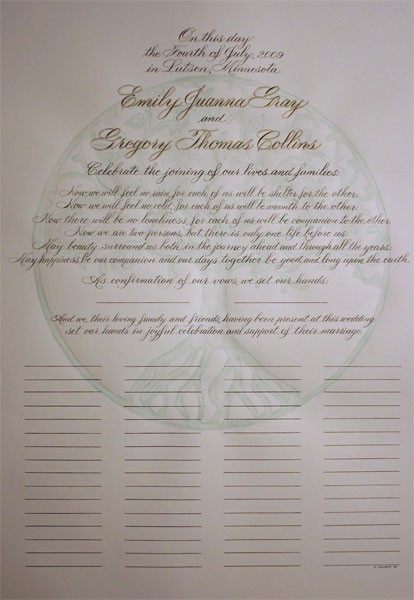 On this day
the Fourth of July, 2009
in Lutsen, Minnesota
Emily Juanna Gray
and
Gregory Thomas Collins
Celebrate the joining of our lives and families
Now we will feel no rain, for each of us will be shelter for the other.
Now we will feel no cold, for each of us will be warmth to the other.
Now there will be no loneliness, for each of us will be companion to the other.
Now we are two persons, but there is only one life before us.
May beauty surround us both in the journey ahead and through all the years.
May happiness be our companion and our days together be good and long upon the earth.
As confirmation of our vows, we set our hands.
And we, their loving family and friends, having been present at this wedding
set our hands in joyful celebration and support of their marriage.